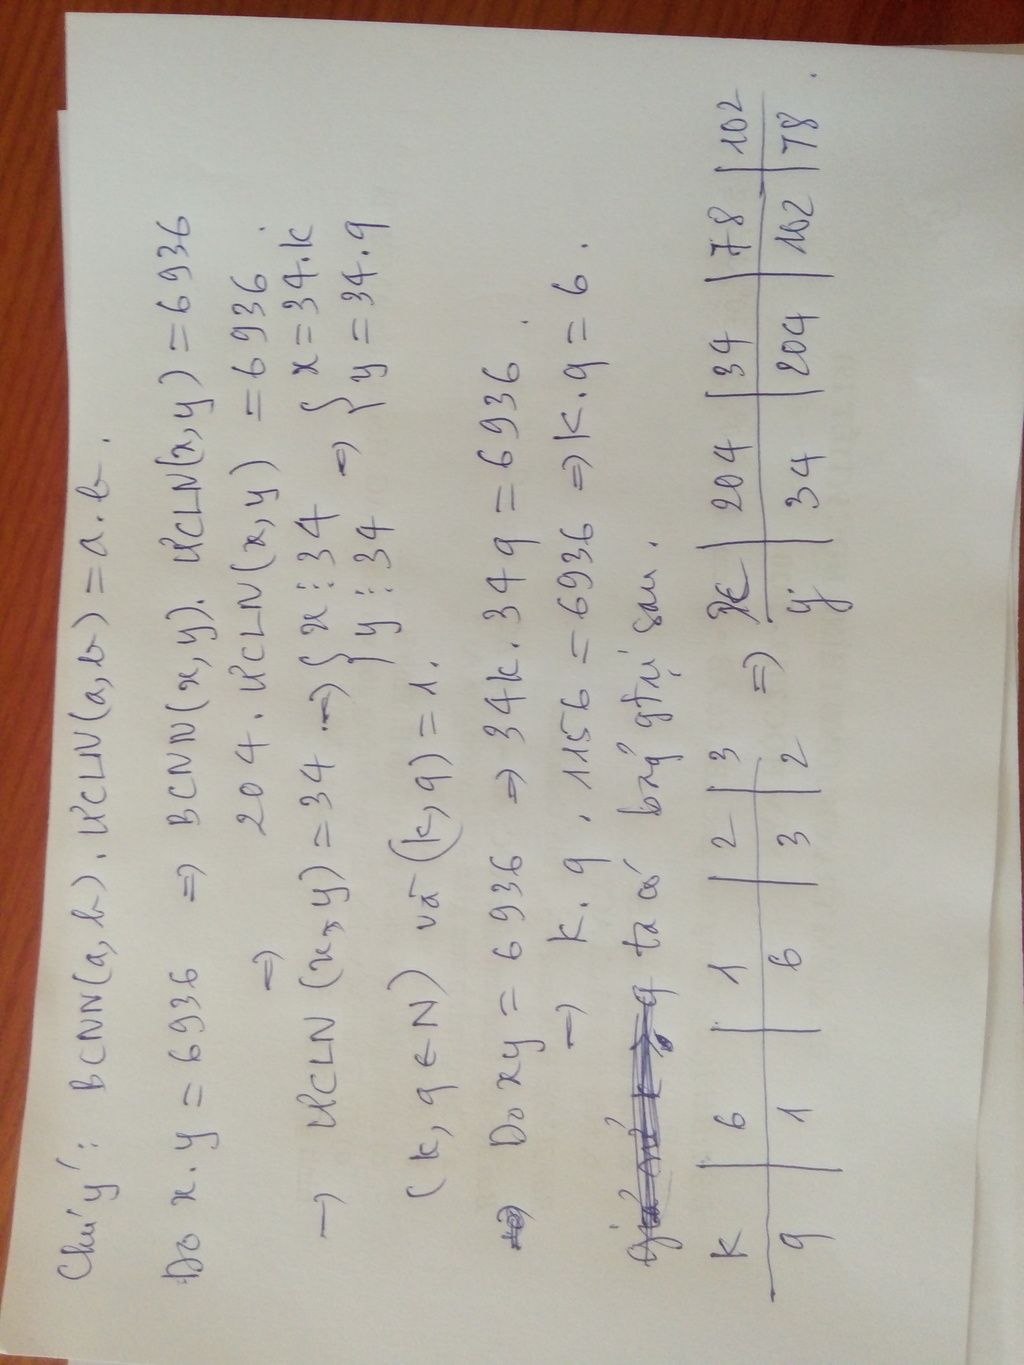 Chú ý: BCNN(a,b). ƯCLN(a,b) = a.b.
Do x.y = 6936 => BCNN(x,y). ƯCLN(x,y) = 6936
=> 204. ƯCLN(x,y) = 6936.
→ ƯCLN (x,y) = 34 → { x ⋮ 34 => { x = 34.k
y ⋮ 34 y = 34.q
(k, q ∈ N) và (k,q) = 1.
Do xy = 6936 => 34k. 34q = 6936.
→ k.q . 1156 = 6936 => k.q = 6.
ta có bảng gtrị sau.
k | 6 | 1 | 2 | 3 => x | 204 | 34 | 78 | 102
q | 1 | 6 | 3 | 2 y | 34 | 204 | 102 | 78 .